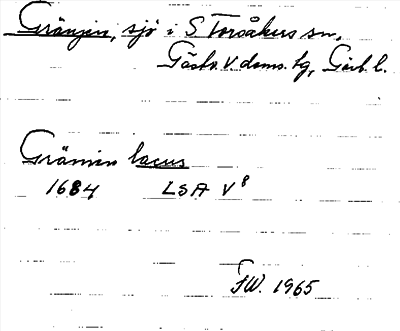 Gränjen, sjö i S Torsåkers sn,
Gästr. V. doms. tg, Gävl. l.
Grämen lacus
1684 LSA V 8
FW. 1965